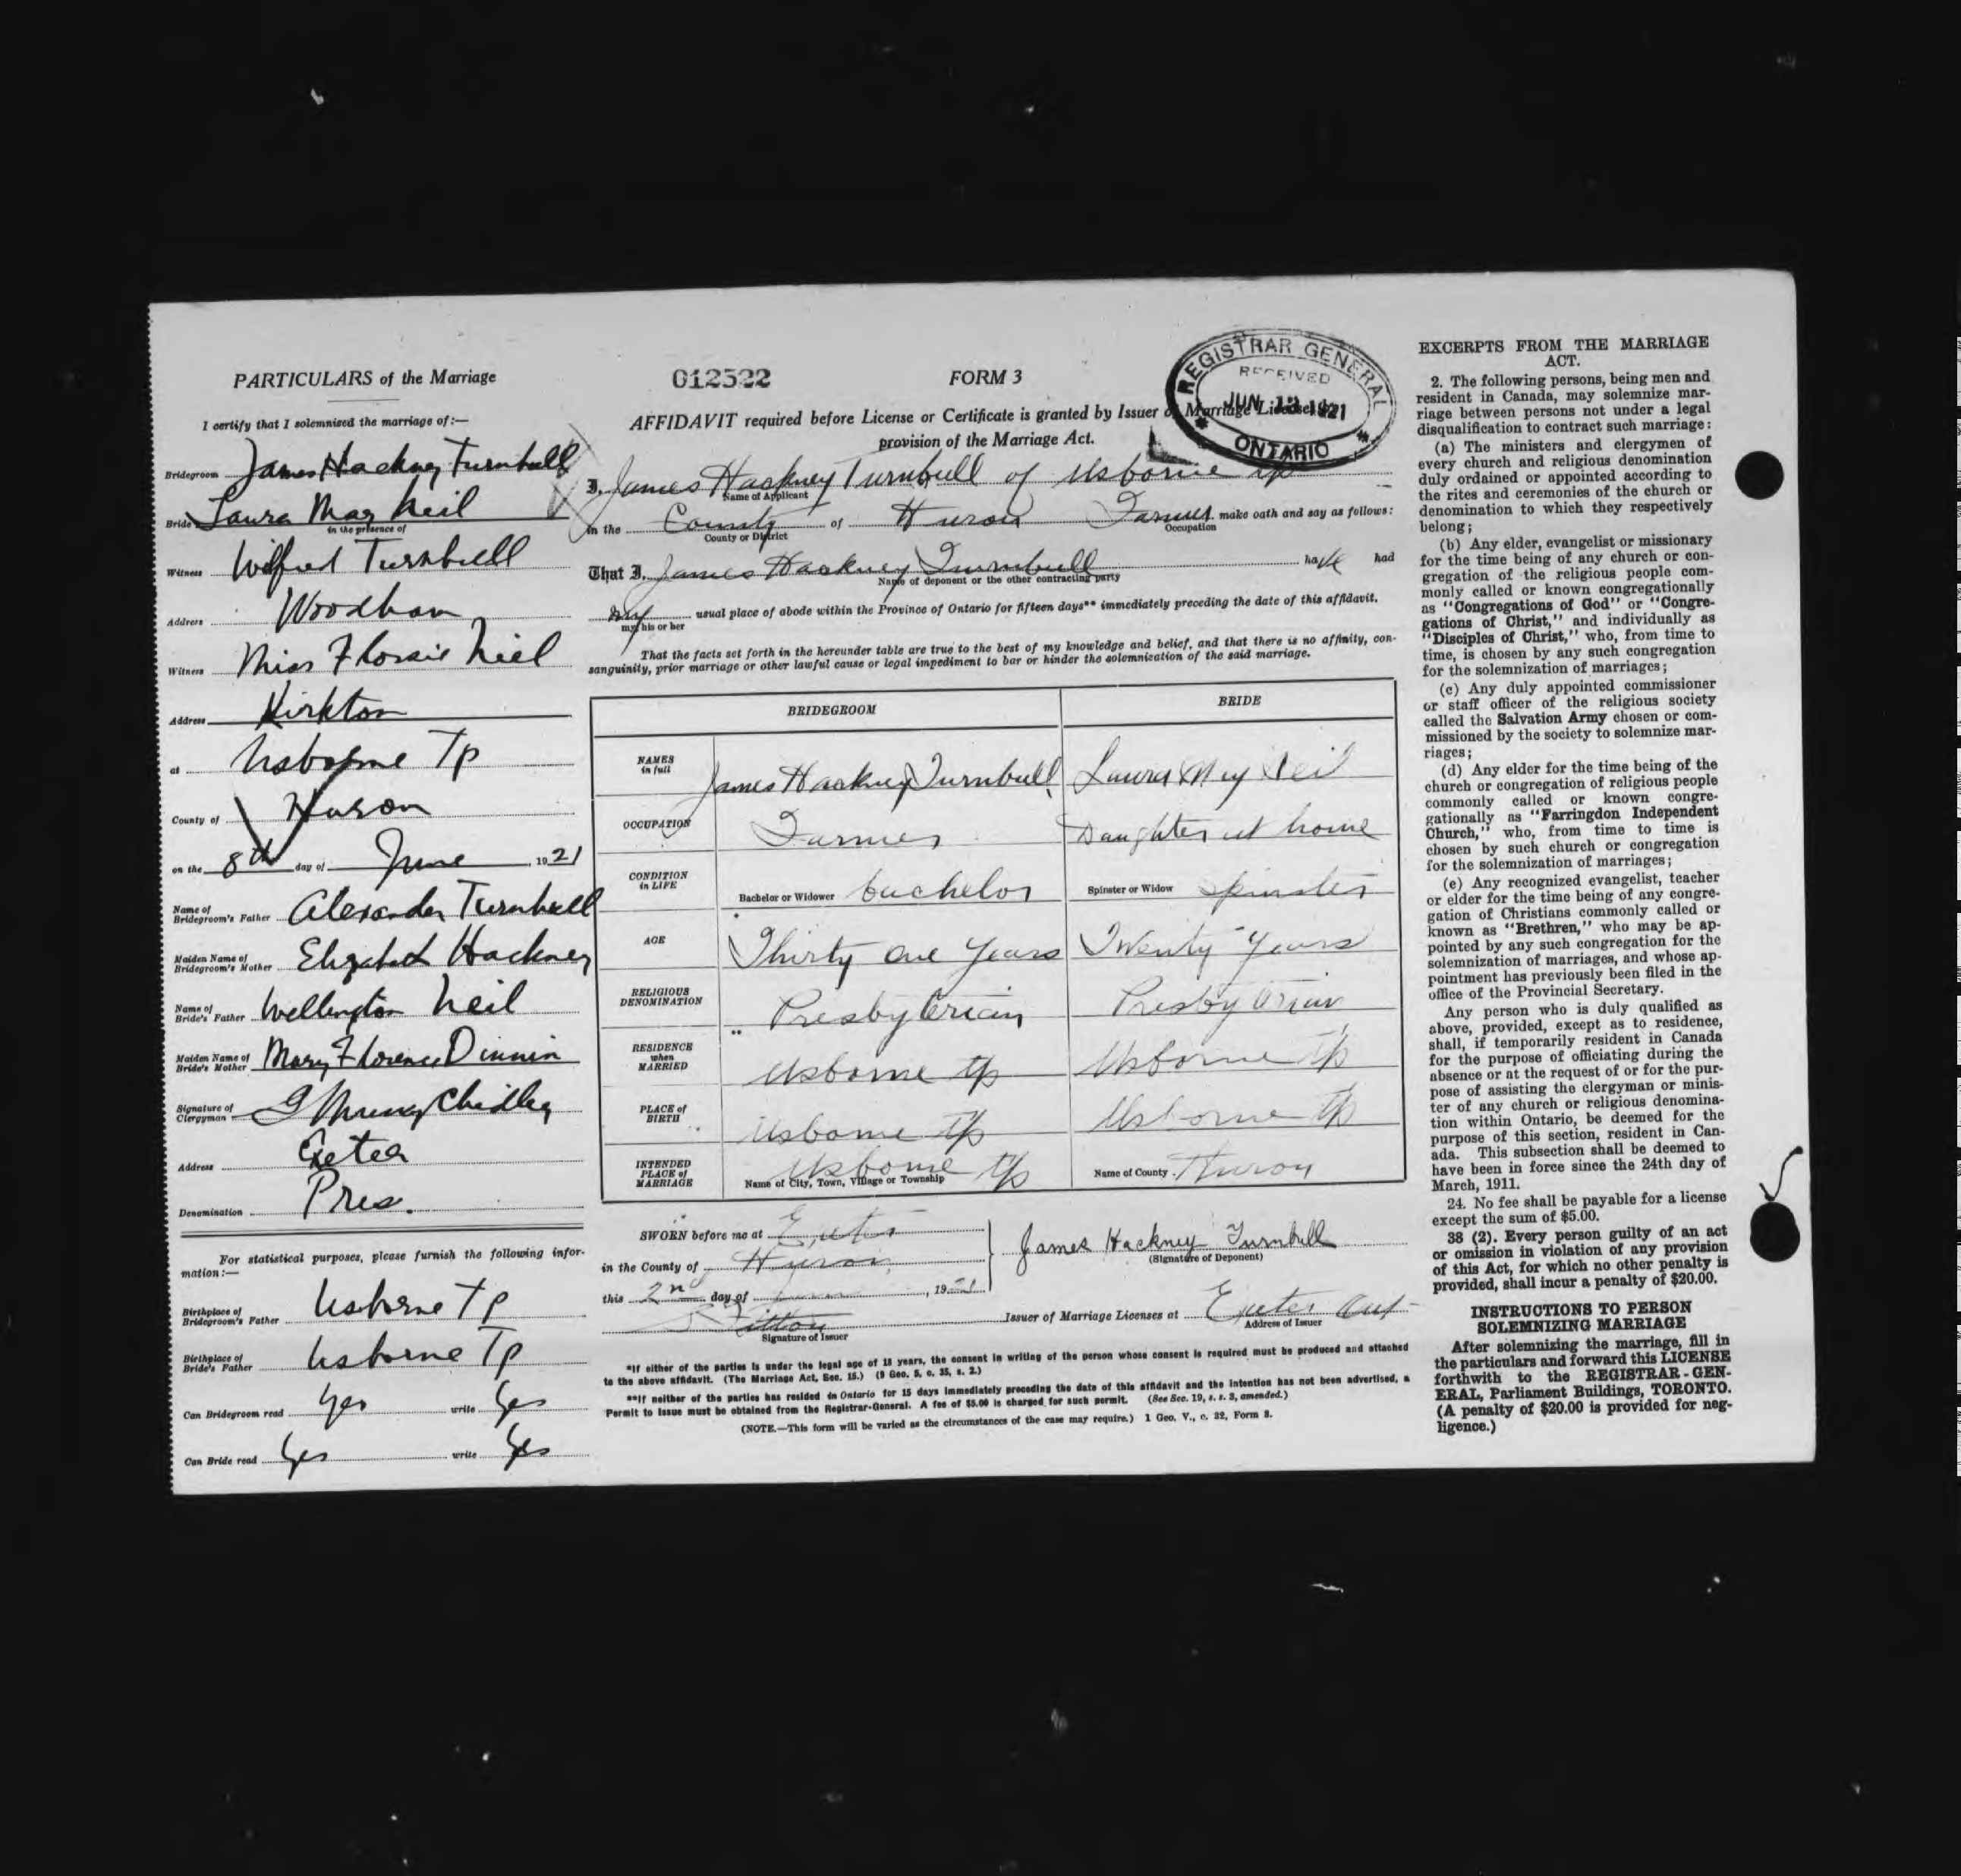 PARTICULARS of the Marriage
I certify that I solemnized the marriage of:—
Bridegroom James Hackney Turnbull
Bride Laura May Neil
in the presence of
Witness Wilfred Turnbull
Address Woodham
Witness Miss Flossie Niel
Address Kirkton
at Usborne Tp
County of Huron
on the 8th day of June 1921
Name of Bridegroom's Father Alexander Turnbull
Maiden Name of Bridegroom's Mother Elizabeth Hackney
Name of Bride's Father Wellington Neil
Maiden Name of Bride's Mother Mary Florence Dinnin
Signature of Clergyman Chidley
Address Exeter
Denomination Pres.
For statistical purposes, please furnish the following infor-
mation:—
Birthplace of Bridegroom's Father Usborne Tp
Birthplace of Bride's Father Usborne Tp
Can Bridegroom read yes write Yes
Can Bride read Yes write Yes
012522
FORM 3
REGISTRAR GENERAL
RECEIVED
JUN 13 1921
ONTARIO
AFFIDAVIT required before License or Certificate is granted by Issuer of Marriage Licenses by
provision of the Marriage Act.
I, James Hackney Turnbull of Usborne tp
Name of Applicant
in the County of Huron Farmer make oath and say as follows:
County or District Occupation
That I, James Hackney Turnbull have had
Name of deponent or the other contracting party
my usual place of abode within the Province of Ontario for fifteen days** immediately preceding the date of this affidavit.
my, his or her
That the facts set forth in the hereunder table are true to the best of my knowledge and belief, and that there is no affinity, con-
sanguinity, prior marriage or other lawful cause or legal impediment to bar or hinder the solemnization of the said marriage.
BRIDEGROOM BRIDE
NAMES in full James Hackney Turnbull Laura May Neil
OCCUPATION Farmer Daughter at home
CONDITION in LIFE Bachelor or Widower bachelor Spinster or Widow Spinster
AGE Thirty one Years Twenty Years
RELIGIOUS DENOMINATION Presbyterian Presbyterian
RESIDENCE when MARRIED Usborne tp Usborne tp
PLACE of BIRTH Usborne tp Usborne tp
INTENDED PLACE of MARRIAGE Usborne tp Name of County Huron
Name of City, Town, Village or Township
SWORN before me at Exeter
in the County of Huron
this 2nd day of June, 1921
James Hackney Turnbull
(Signature of Deponent)
Issuer of Marriage Licenses at Exeter Ont
Signature of Issuer Address of Issuer
*If either of the parties is under the legal age of 18 years, the consent in writing of the person whose consent is required must be produced and attached
to the above affidavit. (The Marriage Act, Sec. 15.) (9 Geo. 5, c. 35, s. 2.)
**If neither of the parties has resided in Ontario for 15 days immediately preceding the date of this affidavit and the intention has not been advertised, a
Permit to Issue must be obtained from the Registrar-General. A fee of $5.00 is charged for such permit. (See Sec. 19, s. s. 3, amended.)
(NOTE.—This form will be varied as the circumstances of the case may require.) 1 Geo. V., c. 32, Form 3.
EXCERPTS FROM THE MARRIAGE
ACT.
2. The following persons, being men and
resident in Canada, may solemnize mar-
riage between persons not under a legal
disqualification to contract such marriage:
(a) The ministers and clergymen of
every church and religious denomination
duly ordained or appointed according to
the rites and ceremonies of the church or
denomination to which they respectively
belong;
(b) Any elder, evangelist or missionary
for the time being of any church or con-
gregation of the religious people com-
monly called or known congregationally
as "Congregations of God" or "Congre-
gations of Christ," and individually as
"Disciples of Christ," who, from time to
time, is chosen by any such congregation
for the solemnization of marriages;
(c) Any duly appointed commissioner
or staff officer of the religious society
called the Salvation Army chosen or com-
missioned by the society to solemnize mar-
riages;
(d) Any elder for the time being of the
church or congregation of religious people
commonly called or known congre-
gationally as "Farringdon Independent
Church," who, from time to time is
chosen by such church or congregation
for the solemnization of marriages;
(e) Any recognized evangelist, teacher
or elder for the time being of any congre-
gation of Christians commonly called or
known as "Brethren," who may be ap-
pointed by any such congregation for the
solemnization of marriages, and whose ap-
pointment has previously been filed in the
office of the Provincial Secretary.
Any person who is duly qualified as
above, provided, except as to residence,
shall, if temporarily resident in Canada
for the purpose of officiating during the
absence or at the request of or for the pur-
pose of assisting the clergyman or minis-
ter of any church or religious denomina-
tion within Ontario, be deemed for the
purpose of this section, resident in Can-
ada. This subsection shall be deemed to
have been in force since the 24th day of
March, 1911.
24. No fee shall be payable for a license
except the sum of $5.00.
38 (2). Every person guilty of an act
or omission in violation of any provision
of this Act, for which no other penalty is
provided, shall incur a penalty of $20.00.
INSTRUCTIONS TO PERSON
SOLEMNIZING MARRIAGE
After solemnizing the marriage, fill in
the particulars and forward this LICENSE
forthwith to the REGISTRAR-GEN-
ERAL, Parliament Buildings, TORONTO.
(A penalty of $20.00 is provided for neg-
ligence.)